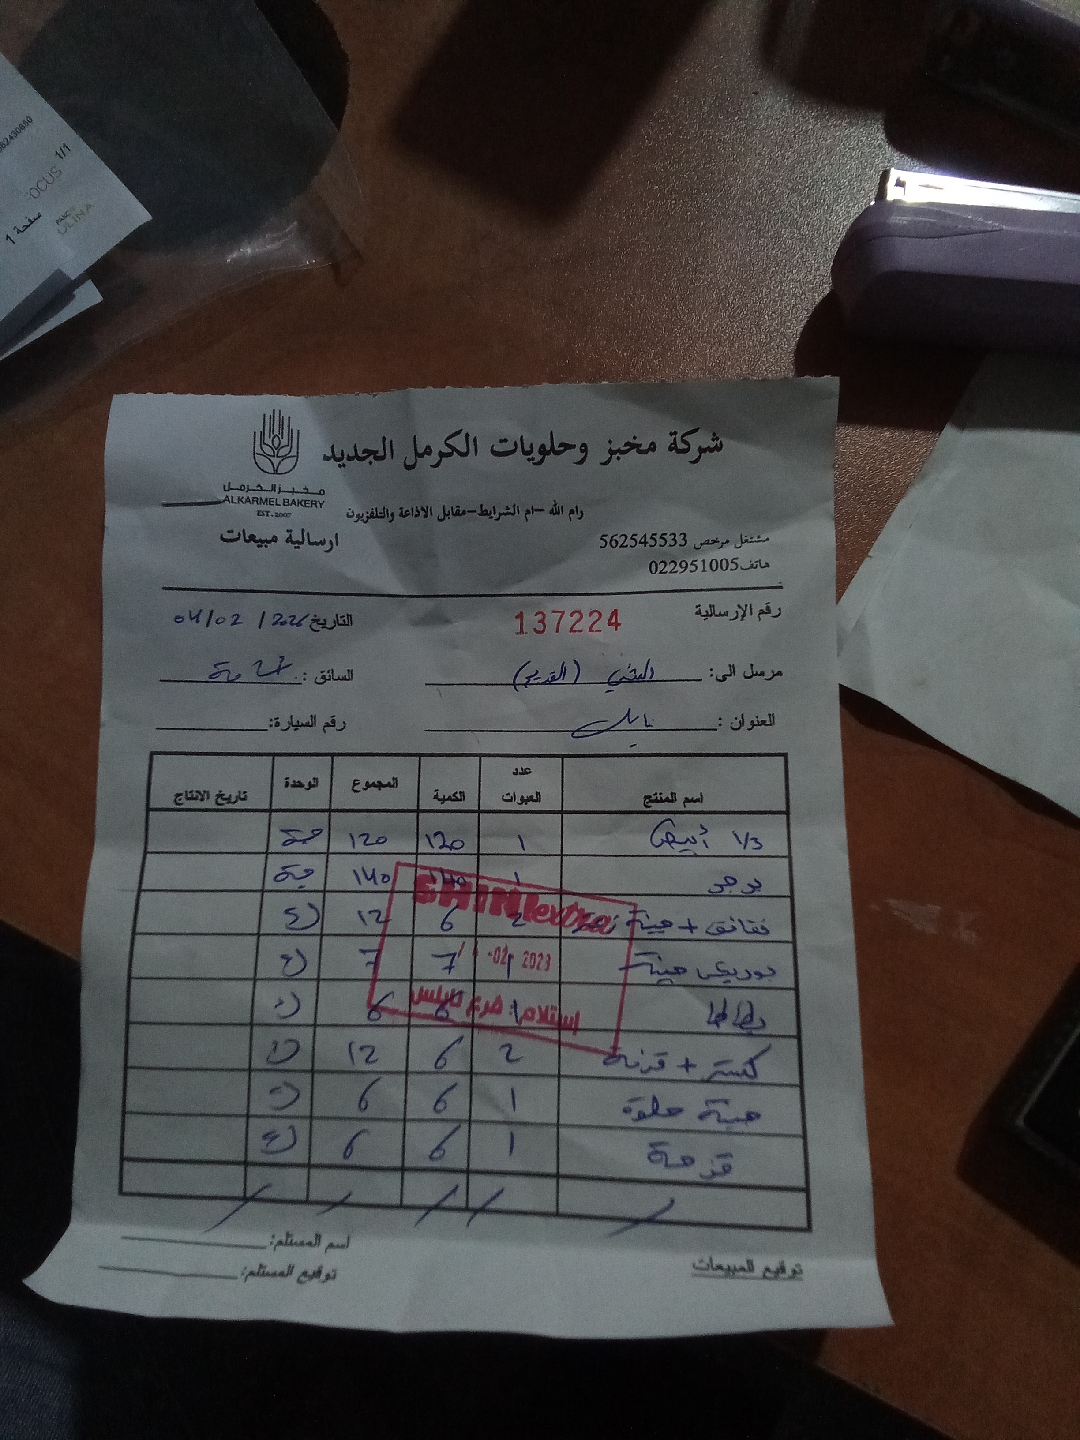 82430650
OCUS
1/1
صفحة 1
ULINA
شركة مخبز وحلويات الكرمل الجديد
مخبز الكرمل
ALKARMEL BAKERY
EST.2007
رام الله -ام الشرايط-مقابل الاذاعة والتلفزيون
ارسالية مبيعات
مشتغل مرخص 562545533
هاتف 022951005
رقم الإرسالية 137224 التاريخ 04/02/2026
مرسل الى: (القديم) السائق:
العنوان: نابلس رقم السيارة:
اسم المنتج عدد العبوات الكمية المجموع الوحدة تاريخ الانتاج
1/3 أبيض 1 120 120 حبة
برجر 1 140 140 حبة
نقانق + جبنة 2 6 12
بوريكس جبنة 1 7 7
بطاطا 1 6 6
كستر + قرفة 2 6 12
جبنة حلوة 1 6 6
قزحة 1 6 6
SHINI extra
-02- 2023
استلام: فرع نابلس
توقيع المبيعات
اسم المستلم:
توقيع المستلم: